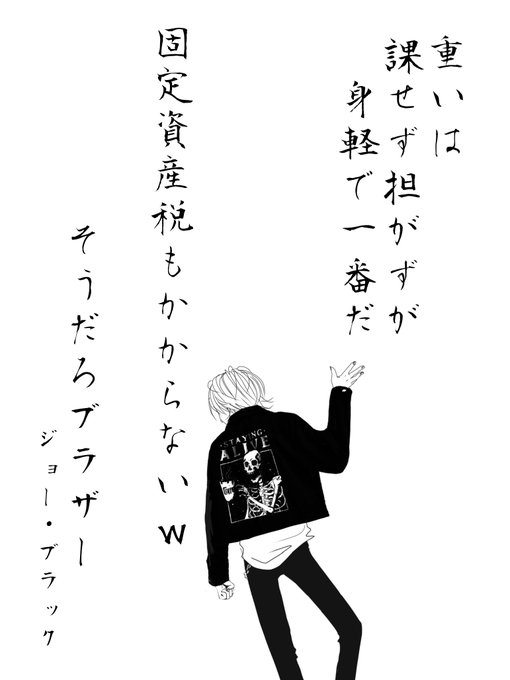 重いは
課せず担がずが
身軽で一番だ
固定資産税もかからないw
そうだろブラザー
ジョー・ブラック
STAYING
ALIVE